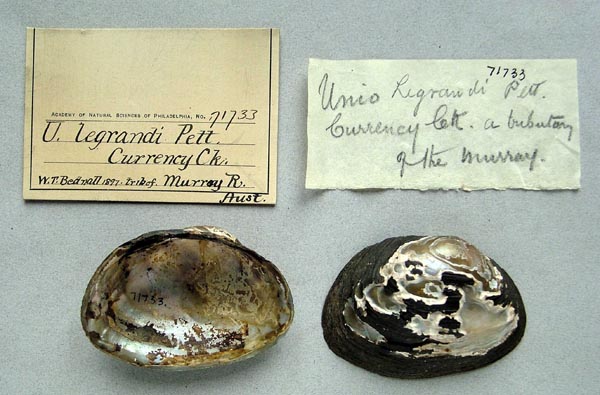 ACADEMY OF NATURAL SCIENCES OF PHILADELPHIA, NO. 71733
U. legrandi Pett.
Currency Ck.
W.T. Bednall 1897. trib. of. Murray R.
Aust.
71733
Unio Legrandi Pett.
Currency Ck. a tributary
of the Murray.
71733.